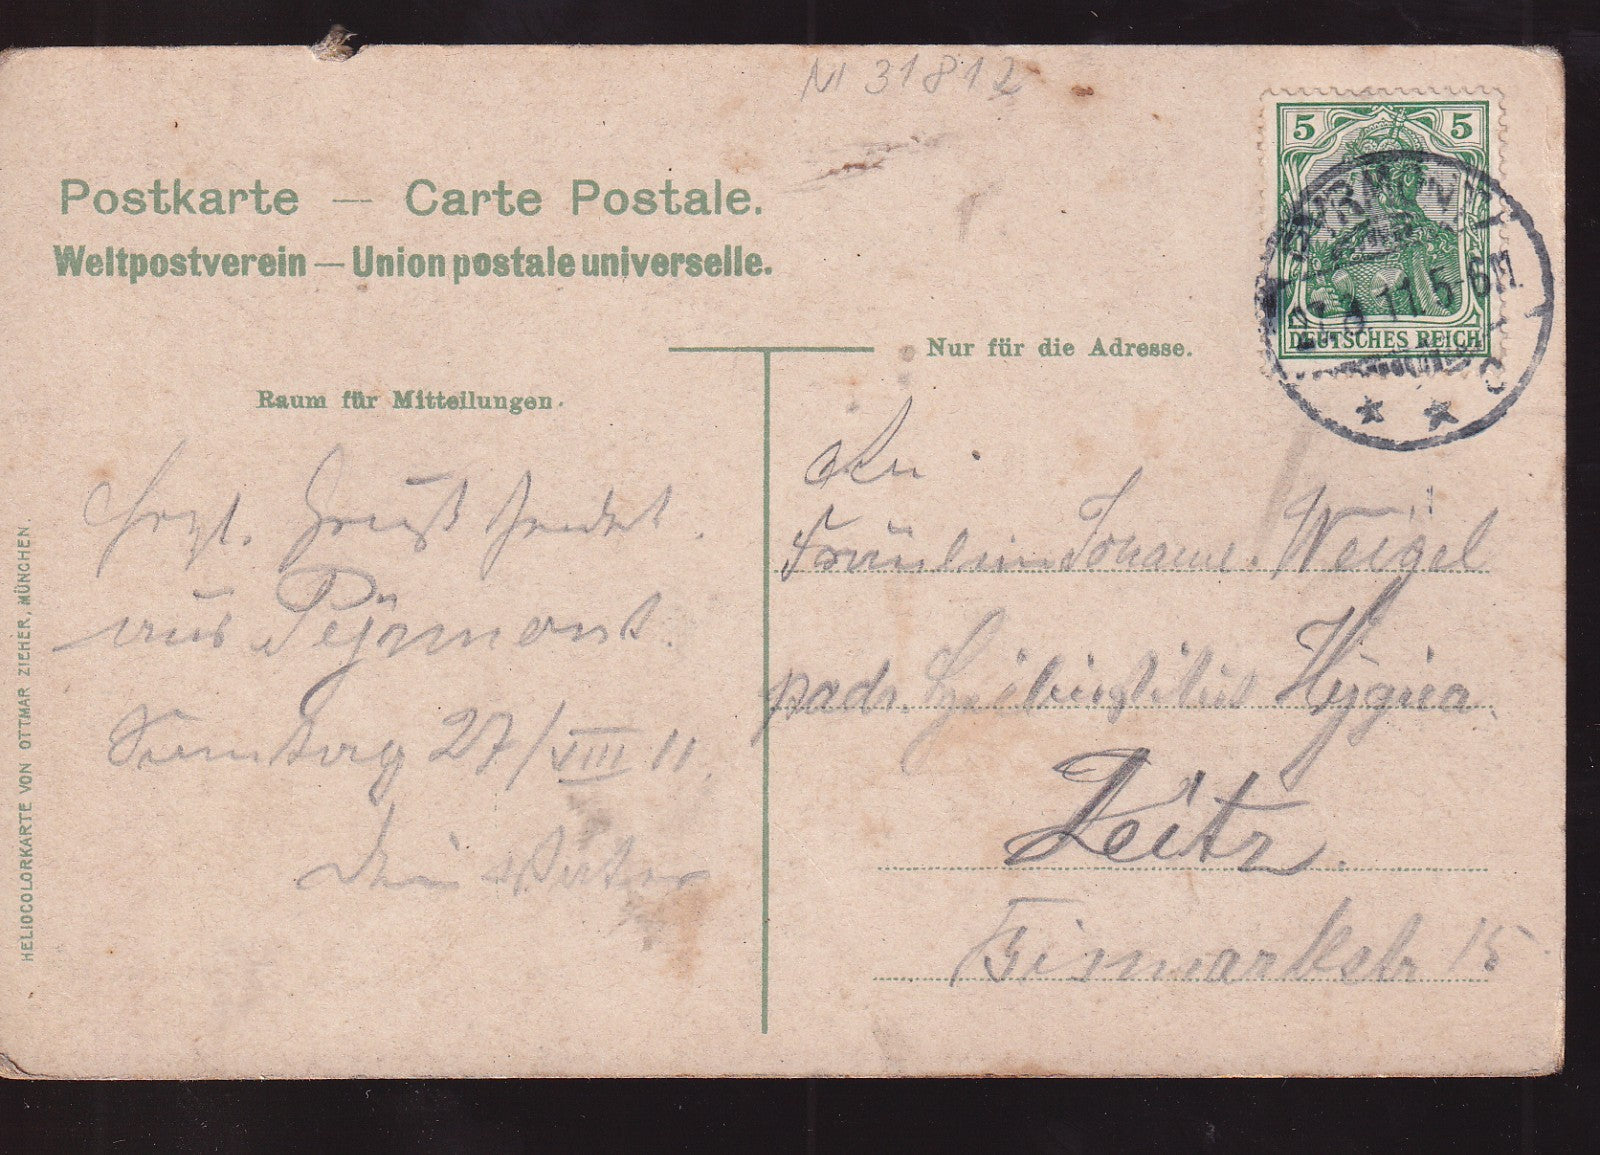 N 31812
Postkarte — Carte Postale.
Weltpostverein — Union postale universelle.
5 5
DEUTSCHES REICH
27.8.11.5-6N.
* * c
Nur für die Adresse.
Raum für Mitteilungen.
Hrzl. Gruß sendet
aus Pyrmont.
Sonntag 27/VIII 11.
Dein Vater
An
Fräulein Johanne. Weigel
Hygiea.
Zeitz.
Bismarkstr 15
HELIOCOLORKARTE VON OTTMAR ZIEHER, MÜNCHEN.